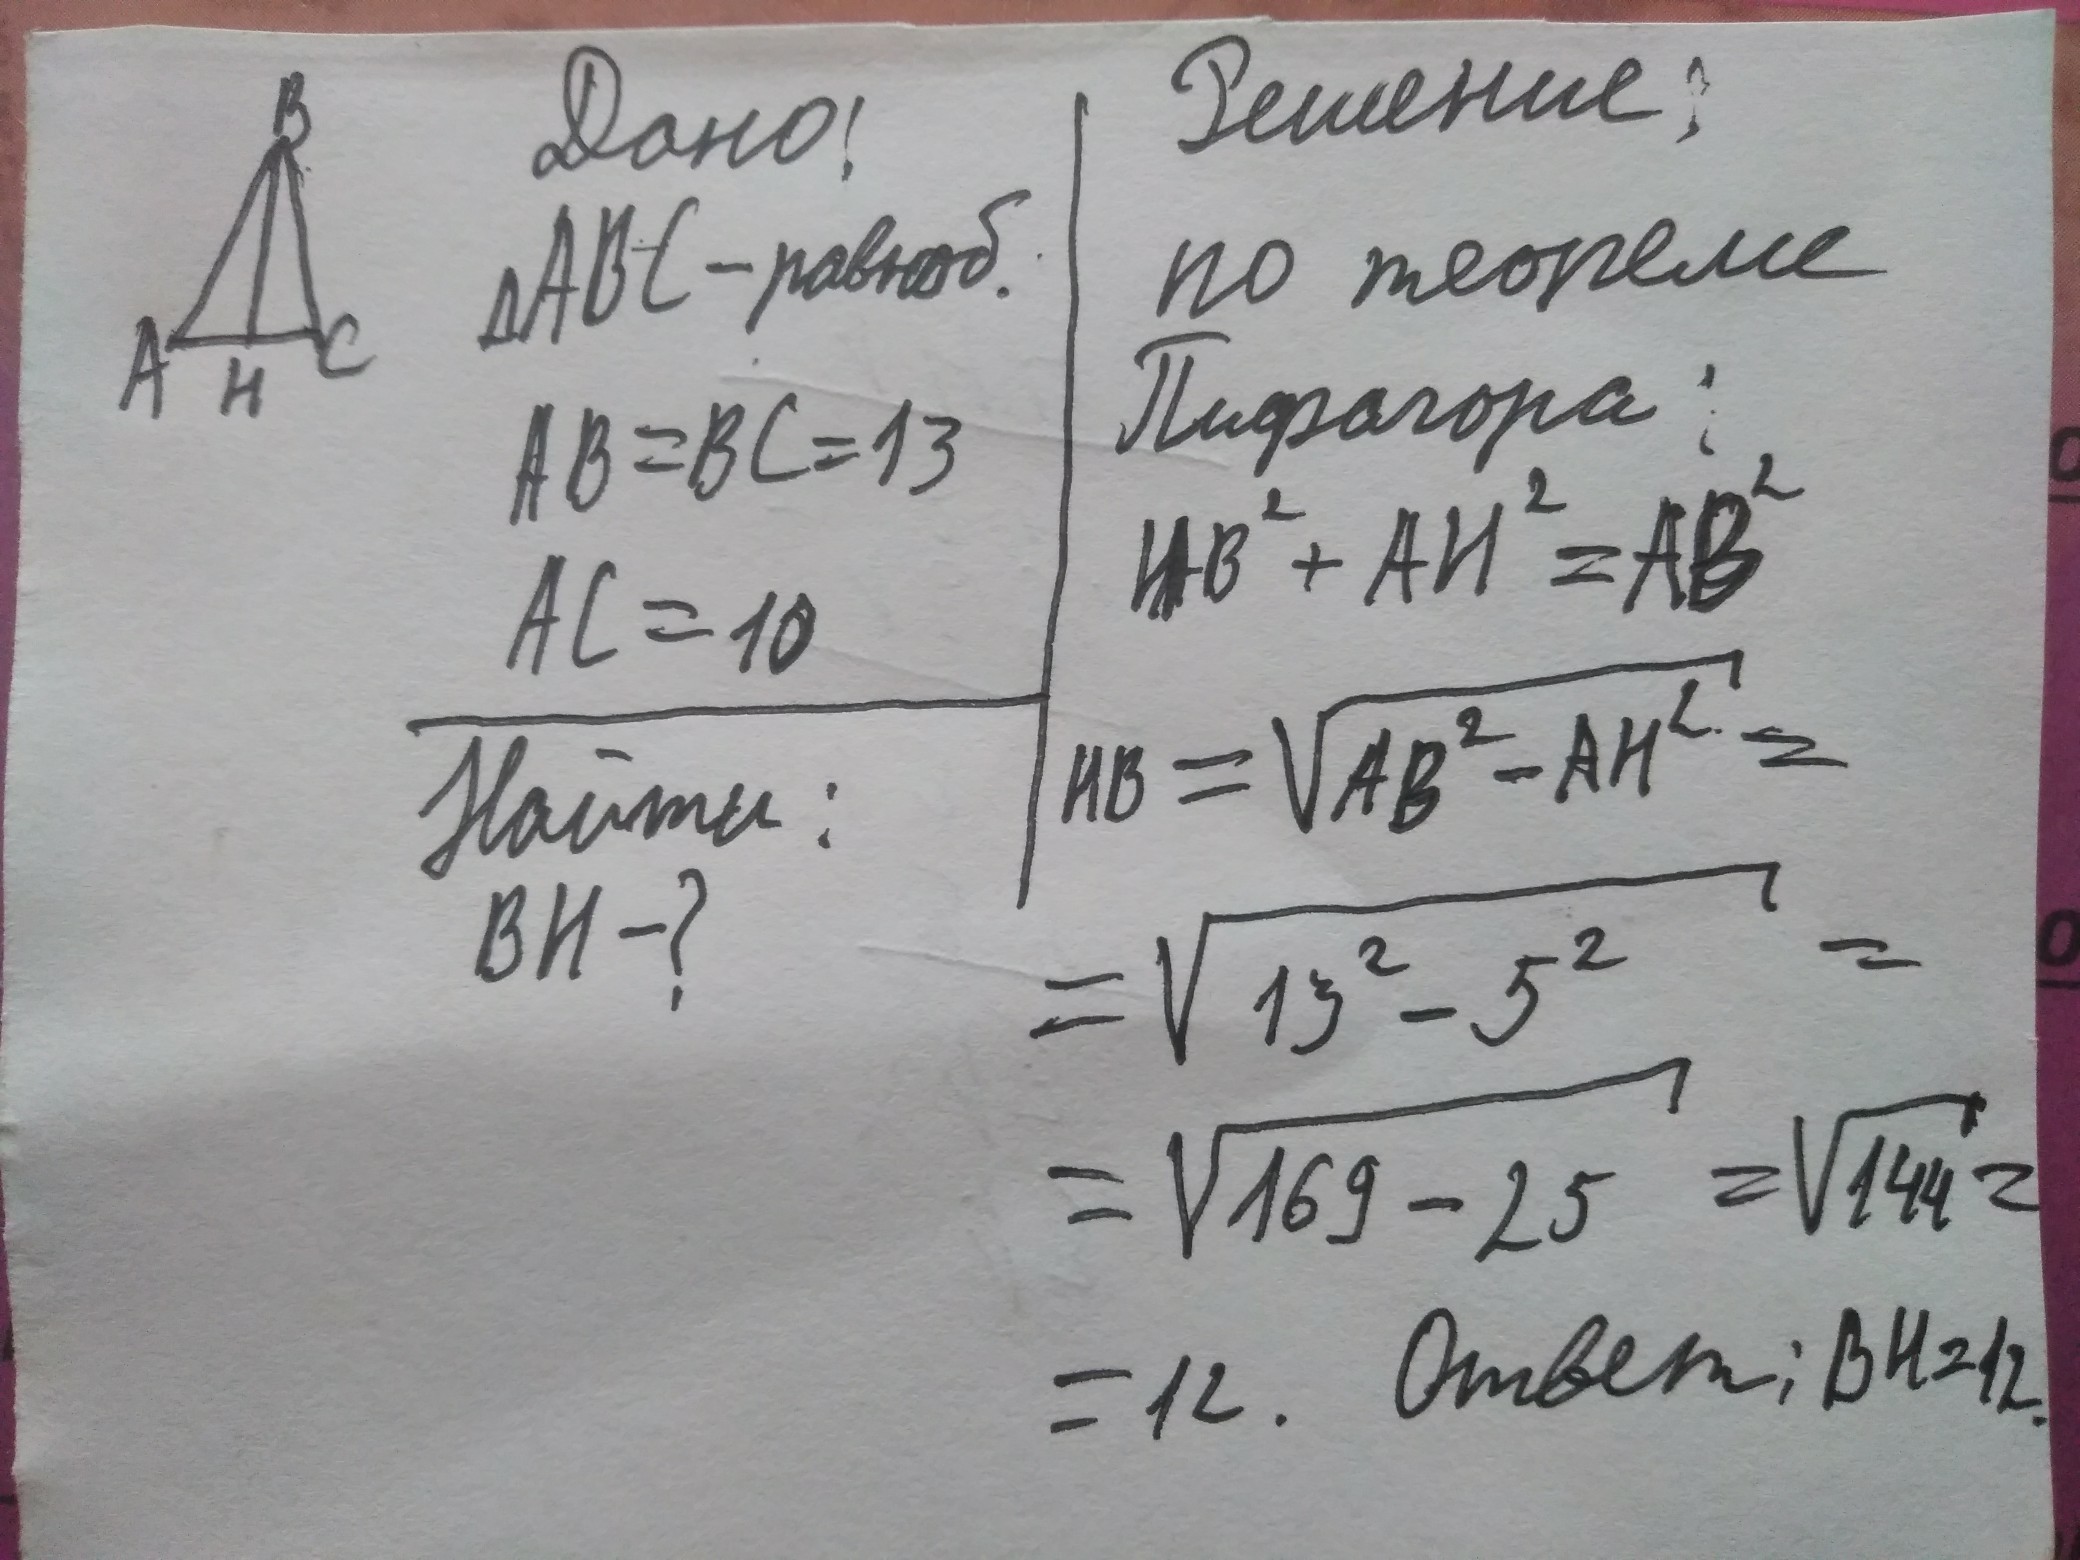 B
A H C
Дано:
ΔABC – равноб.
AB = BC = 13
AC = 10
Найти:
BH – ?
Решение:
по теореме
Пифагора:
HB² + AH² = AB²
HB = √(AB² – AH²) =
= √(13² – 5²) =
= √(169 – 25) = √144 =
= 12. Ответ: BH = 12.